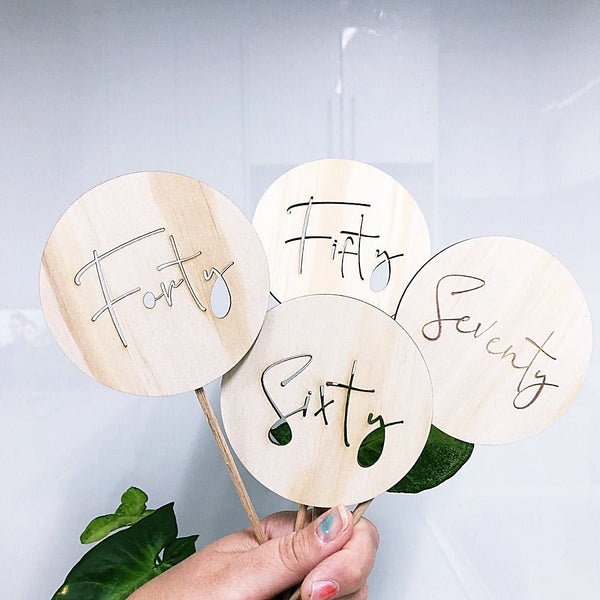 Forty
Fifty
Sixty
Seventy